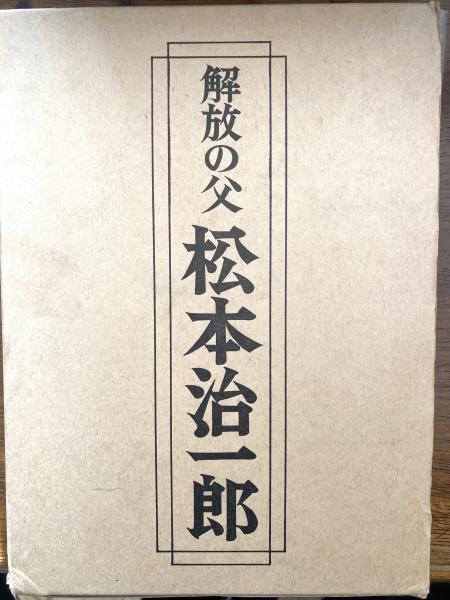 解放の父 松本治一郎